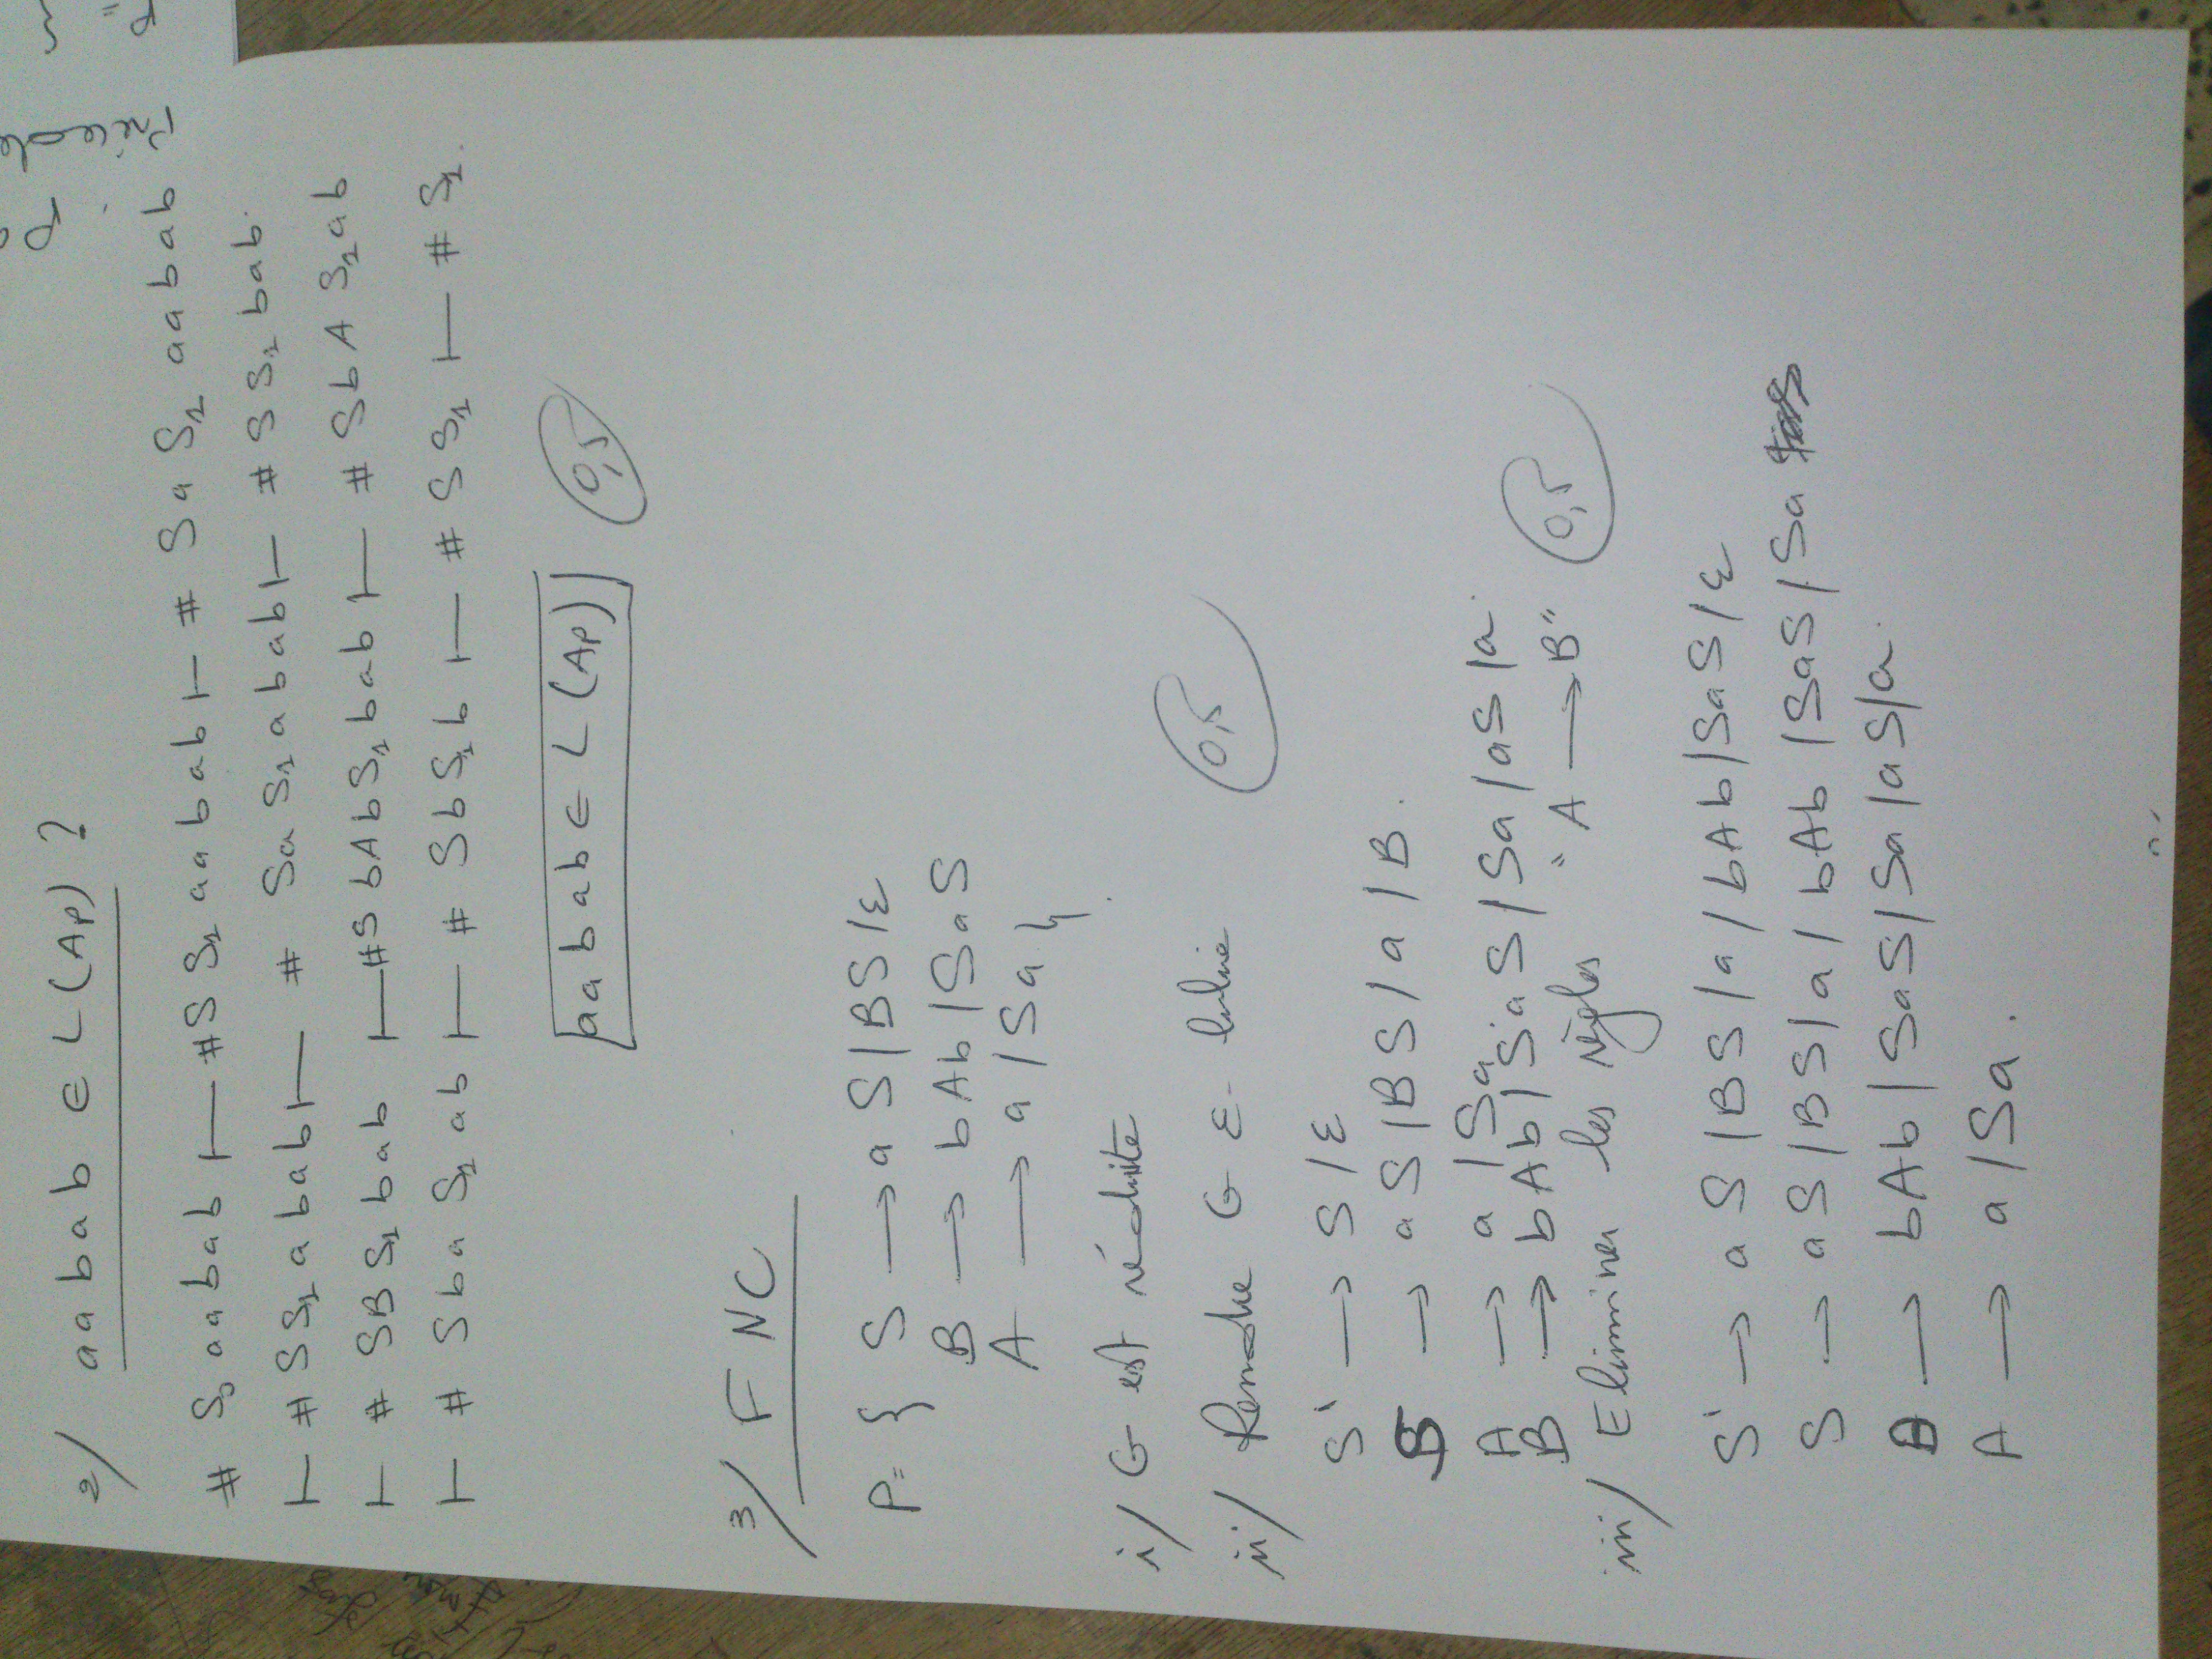 2/ aabab ∈ L(Ap) ?
# S₀ aabab ⊢ #S S₁ aabab ⊢ # Sa S₁ aabab
⊢ # S S₁ abab ⊢ # Sa S₁ abab ⊢ # S S₁ bab
⊢ # SB S₁ bab ⊢ #S bAb S₁ bab ⊢ # SbA S₁ ab
⊢ # Sba S₁ ab ⊢ # Sb S₁ b ⊢ # S S₁ ⊢ # S₁.
aabab ∈ L(Ap) 0,5
3/ FNC
P= { S → aS/BS/ε
B → bAb/SaS
A → a/Sa }
i/ G est réduite
ii/ Rendre G ε- libre 0,5
S' → S/ε
S → aS/BS/a/B.
A → a/Sa.
B → bAb/SaS/Sa/aS/a.
iii/ Eliminer les règles "A → B" 0,5
S' → aS/BS/a/bAb/SaS/ε
S → aS/BS/a/bAb/SaS/Sa
B → bAb/SaS/Sa/aS/a.
A → a/Sa.
P=
{